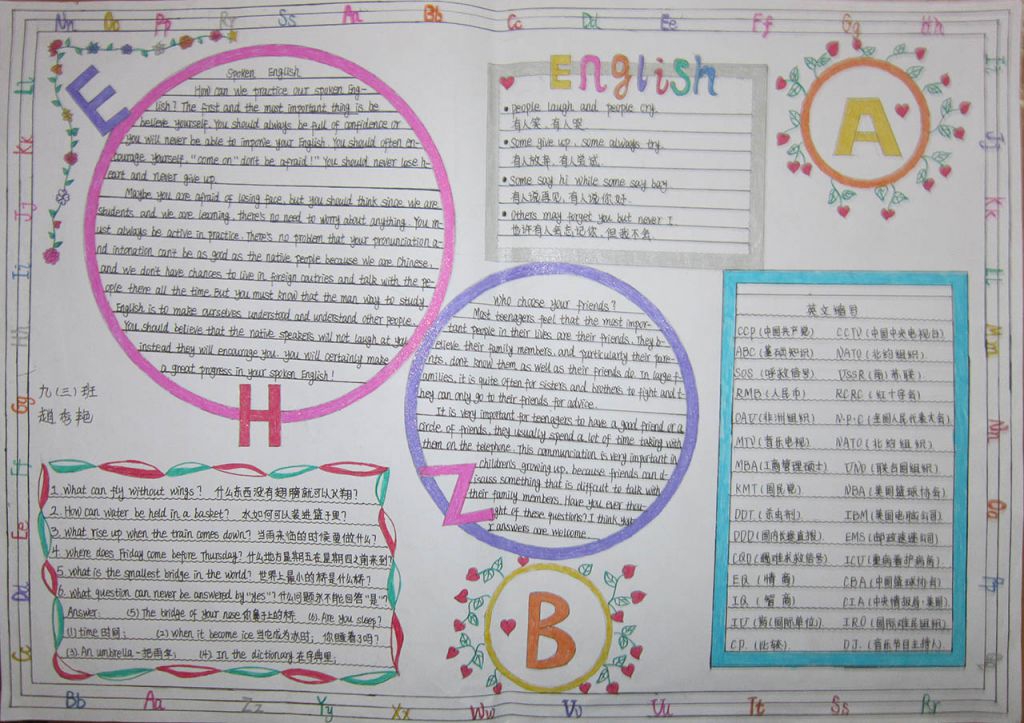 Nn Oo Pp Rr Ss Aa Bb Cc Dd Ee Ff Gg Hh
E
Spoken English
How can we practice our spoken Eng-
lish? The first and the most important thing is be
believe yourself. You should always be full of confidence or
you will never be able to improve your English. You should often en-
courage yourself. "come on" don't be afraid!" You should never lose h-
eart and never give up.
Maybe you are afraid of losing face, but you should think since we are
students and we are learning, there's no need to worry about anything. You m-
ust always be active in practice. There's no problem that your pronunciation a-
nd intonation can't be as good as the native people because we are Chinese,
and we don't have chances to live in foreign coutries and talk with the pe-
ople there all the time. But you must know that the man way to study
English is to make ourselves understood and understand other people.
You should believe that the native speakers will not laugh at you
instead they will encourage you. you will certainly make
a great progress in your spoken English!
H
English
people laugh and people cry.
有人笑，有人哭
Some give up. some always try.
有人放弃，有人尝试
Some say hi while some say bay.
有人说再见，有人说你好.
Others may forget you but never I.
也许有人会忘记你，但我不会.
A
Who choose your friends?
Most teenagers feel that the most impor-
tant people in their lives are their friends. They b-
elieve their family members, and particularly their pare-
nts, don't know them as well as their friends do. In large f-
amilies, it is quite often for sisters and brothers to fight and t-
hey can only go to their friends for advice.
It is very important for teenagers to have a good friend or a
circle of friends. they usually spend a lot of time taking with
them on the telephone. This communciation is very important in
children's growing up, because friends can d-
iscuss something that is difficult to talk with
their family members. Have you ever thou-
ght of these questions? I think you
r answers are welcome.
Z
英文缩目
CCP (中国共产党) CCTV (中国中央电视台)
ABC (基础知识) NATO (北约组织)
SOS (呼救信号) USSR (前苏联)
RMB (人民币) RCRC (红十字会)
OAU (非洲组织) N.P.C (全国人民代表大会)
MTV (音乐电视) NATO (北约组织)
MBA (工商管理硕士) UNO (联合国组织)
KMT (国民党) NBA (美国篮球协会)
DDT (杀虫剂) IBM (美国电脑公司)
DDD (国内长途直拨) EMS (邮政速递公司)
CQD (遇难求救信号) ICU (重病看护病房)
EQ (情商) CBA (中国篮球协会)
IQ (智商) CIA (中央情报局·美国)
IU (国际单位) IRO (国际难民组织)
CP. (比较) DJ. (音乐节目主持人)
九(三)班
趙秀艳
1. what can fly without wings? 什么东西没有翅膀就可以飞翔?
2. How can water be held in a basket? 水如何可以装进篮子里?
3. what rise up when the train comes down? 当雨来临的时候拿的什么?
4. where does Friday come before Thursday? 什么地方星期五在星期四前来到?
5. what is the smallest bridge in the world? 世界上最小的桥是什么桥?
6. what question can never be answered by "yes"? 什么问题永不能回答"是"?
Answer: (5) The bridge of your nose 你鼻子上的桥 (6). Are you sleep?
(1) time 时间; (2) when it become ice 当它成为冰时; 你睡着了吗?
(3). An umbrella 一把雨伞; (4) In the dictionary 在字典里;
B
Ll
Kk
Jj
Ii
Hh
Gg
Ff
Ee
Dd
Cc
Ii
Jj
Kk
Ll
Mm
Nn
Oo
Pp
Qq
Bb Aa Zz Yy Xx Ww Vv Uu Tt Ss Rr